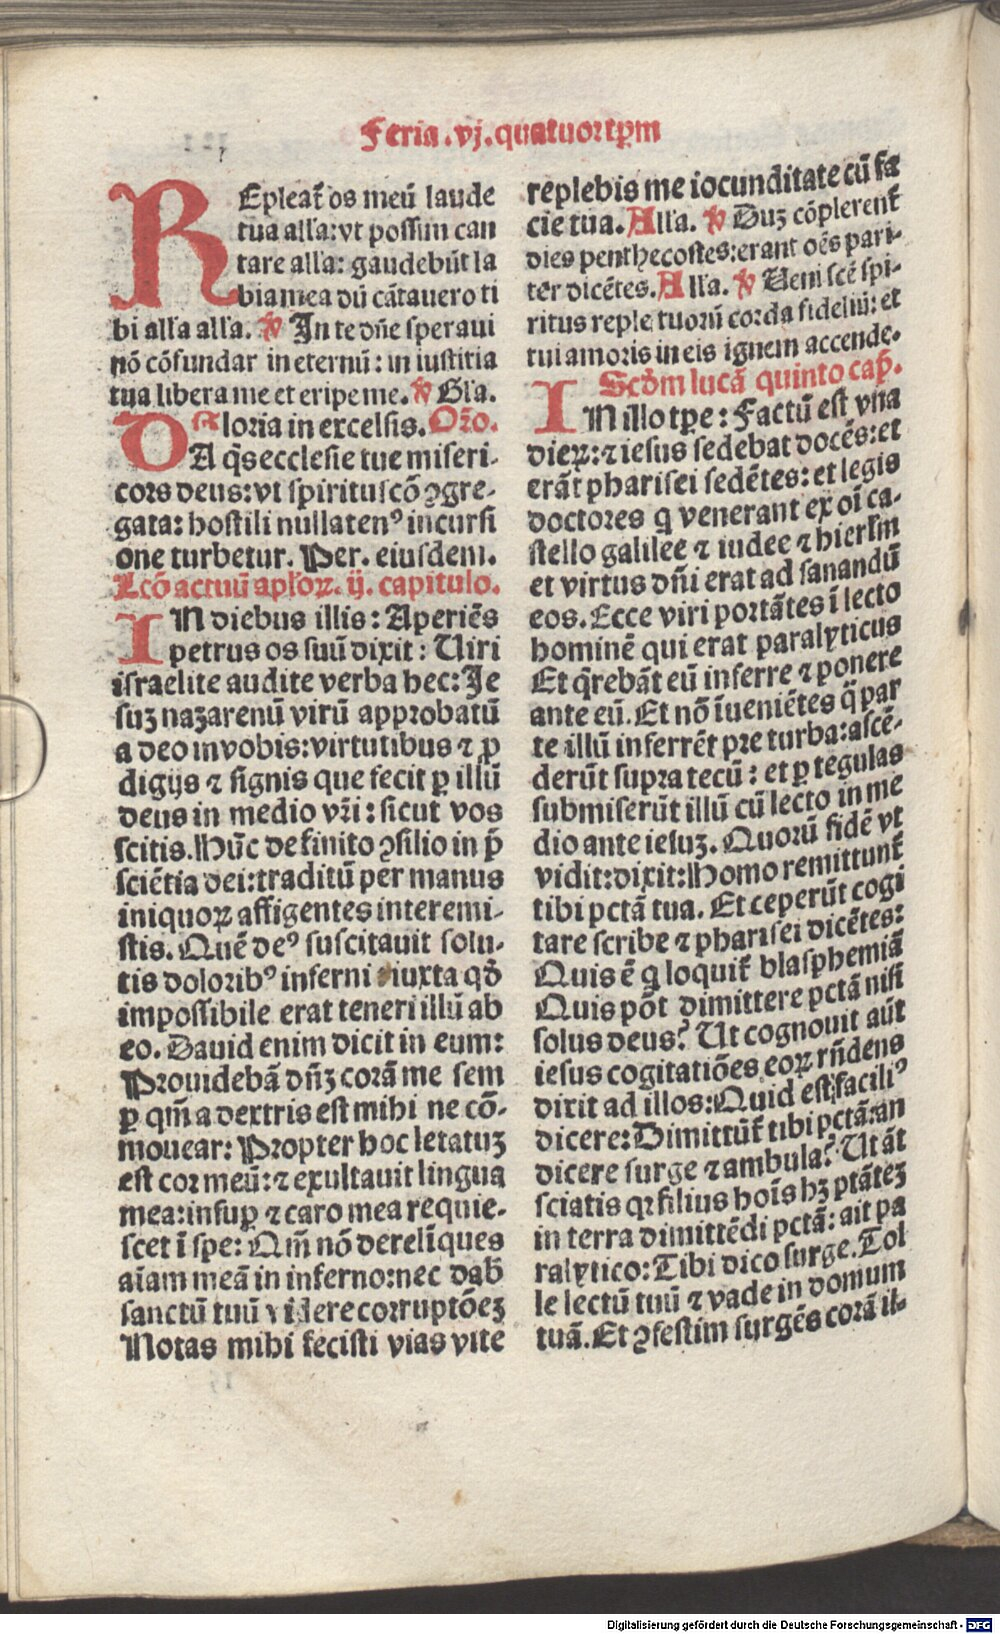 Feria .vj. quatuortꝑm
REpleat᷑ os meū laude
tua alľa: vt possim can
tare alľa: gaudebūt la
bia mea dū cātauero ti
bi alľa alľa. ℣ In te dn̄e speraui
nō cōfundar in eternū: in iustitia
tua libera me et eripe me. ℣ Gľa.
Gloria in excelsis. Or̄o.
DA q̄s ecclesie tue miseri-
cors deus: vt spiritu scō ꝯgre-
gata: hostili nullatenꝰ incursi
one turbetur. Per. eiusdem.
Lcō actuū apľoꝝ. ij. capitulo.
IN diebus illis: Aperiēs
petrus os suū dixit: Uiri
israelite audite verba hec: Je
suʒ naʒarenū virū approbatū
a deo in vobis: virtutibus ⁊ ꝓ
digijs ⁊ signis que fecit ꝑ illū
deus in medio vr̄i: sicut vos
scitis. Hūc definito ꝯsilio in p̄
sciētia dei: traditū per manus
iniquoꝝ affigentes interemi-
stis. Quē deꝰ suscitauit solu-
tis doloribꝰ inferni iuxta qđ
impossibile erat teneri illū ab
eo. Dauid enim dicit in eum:
Prouidebā dn̄ʒ corā me sem
ꝑ qm̄ a dextris est mihi ne cō-
mouear: Propter hoc letatuʒ
est cor meū: ⁊ exultauit lingua
mea: insuꝑ ⁊ caro mea requie-
scet ī spe: Qm̄ nō derelīques
aīam meā in inferno: nec dab̄
sanctū tuū videre corruptōeʒ
Notas mihi fecisti vias vite
replebis me iocunditate cū fa
cie tua. Alľa. ℣ Duʒ cōplerent᷑
dies penthecostes: erant oēs pari-
ter dicētes. Alľa. ℣ Ueni scē spi-
ritus reple tuorū corda fideliū: et
tui amoris in eis ignem accende.
Scđm lucā quinto cap̄.
IN illo tꝑe: Factū est vna
dieꝝ: ⁊ iesus sedebat docēs: et
erāt pharisei sedētes: et legis
doctores q̄ venerant ex oī ca-
stello galilee ⁊ iudee ⁊ hierľm
et virtus dn̄i erat ad sanandū
eos. Ecce viri portātes ī lecto
hominē qui erat paralyticus
Et q̄rebāt eū inferre ⁊ ponere
ante eū. Et nō īueniētes q̄ par
te illū inferrēt pre turba: ascē-
derūt supra tecū: et ꝑ tegulas
submiserūt illū cū lecto in me
dio ante iesuʒ. Quorū fidē vt
vidit: dixit: Homo remittunt᷑
tibi pctā tua. Et ceperūt cogi
tare scribe ⁊ pharisei dicētes:
Quis ē q̄ loquit᷑ blasphemiā
Quis pōt dimittere pctā nisi
solus deus? Ut cognouit aūt
iesus cogitatiōes eoꝝ rn̄dens
dixit ad illos: Quid est faciliꝰ
dicere: Dimittūt᷑ tibi pctā: an
dicere surge ⁊ ambula? Ut āt
sciatis qꝛ filius hoīs hʒ ptāteʒ
in terra dimittēdi pctā: ait pa
ralytico: Tibi dico surge. Tol
le lectū tuū ⁊ vade in domum
tuā. Et ꝯfestim surgēs corā il-
Digitalisierung gefördert durch die Deutsche Forschungsgemeinschaft - DFG